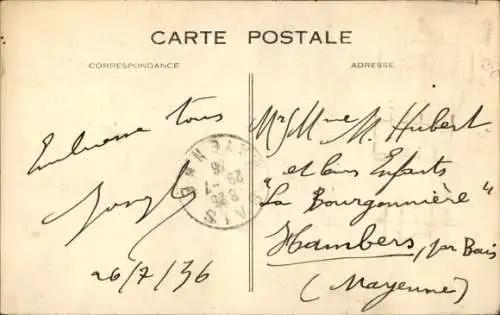 CARTE POSTALE
CORRESPONDANCE
ADRESSE
Embrasse tous
26/7/36
Mr & Mme M. Hubert
et leurs Enfants
"La Bourgonnière"
Hambers, par Bais
(Mayenne)
BAIS